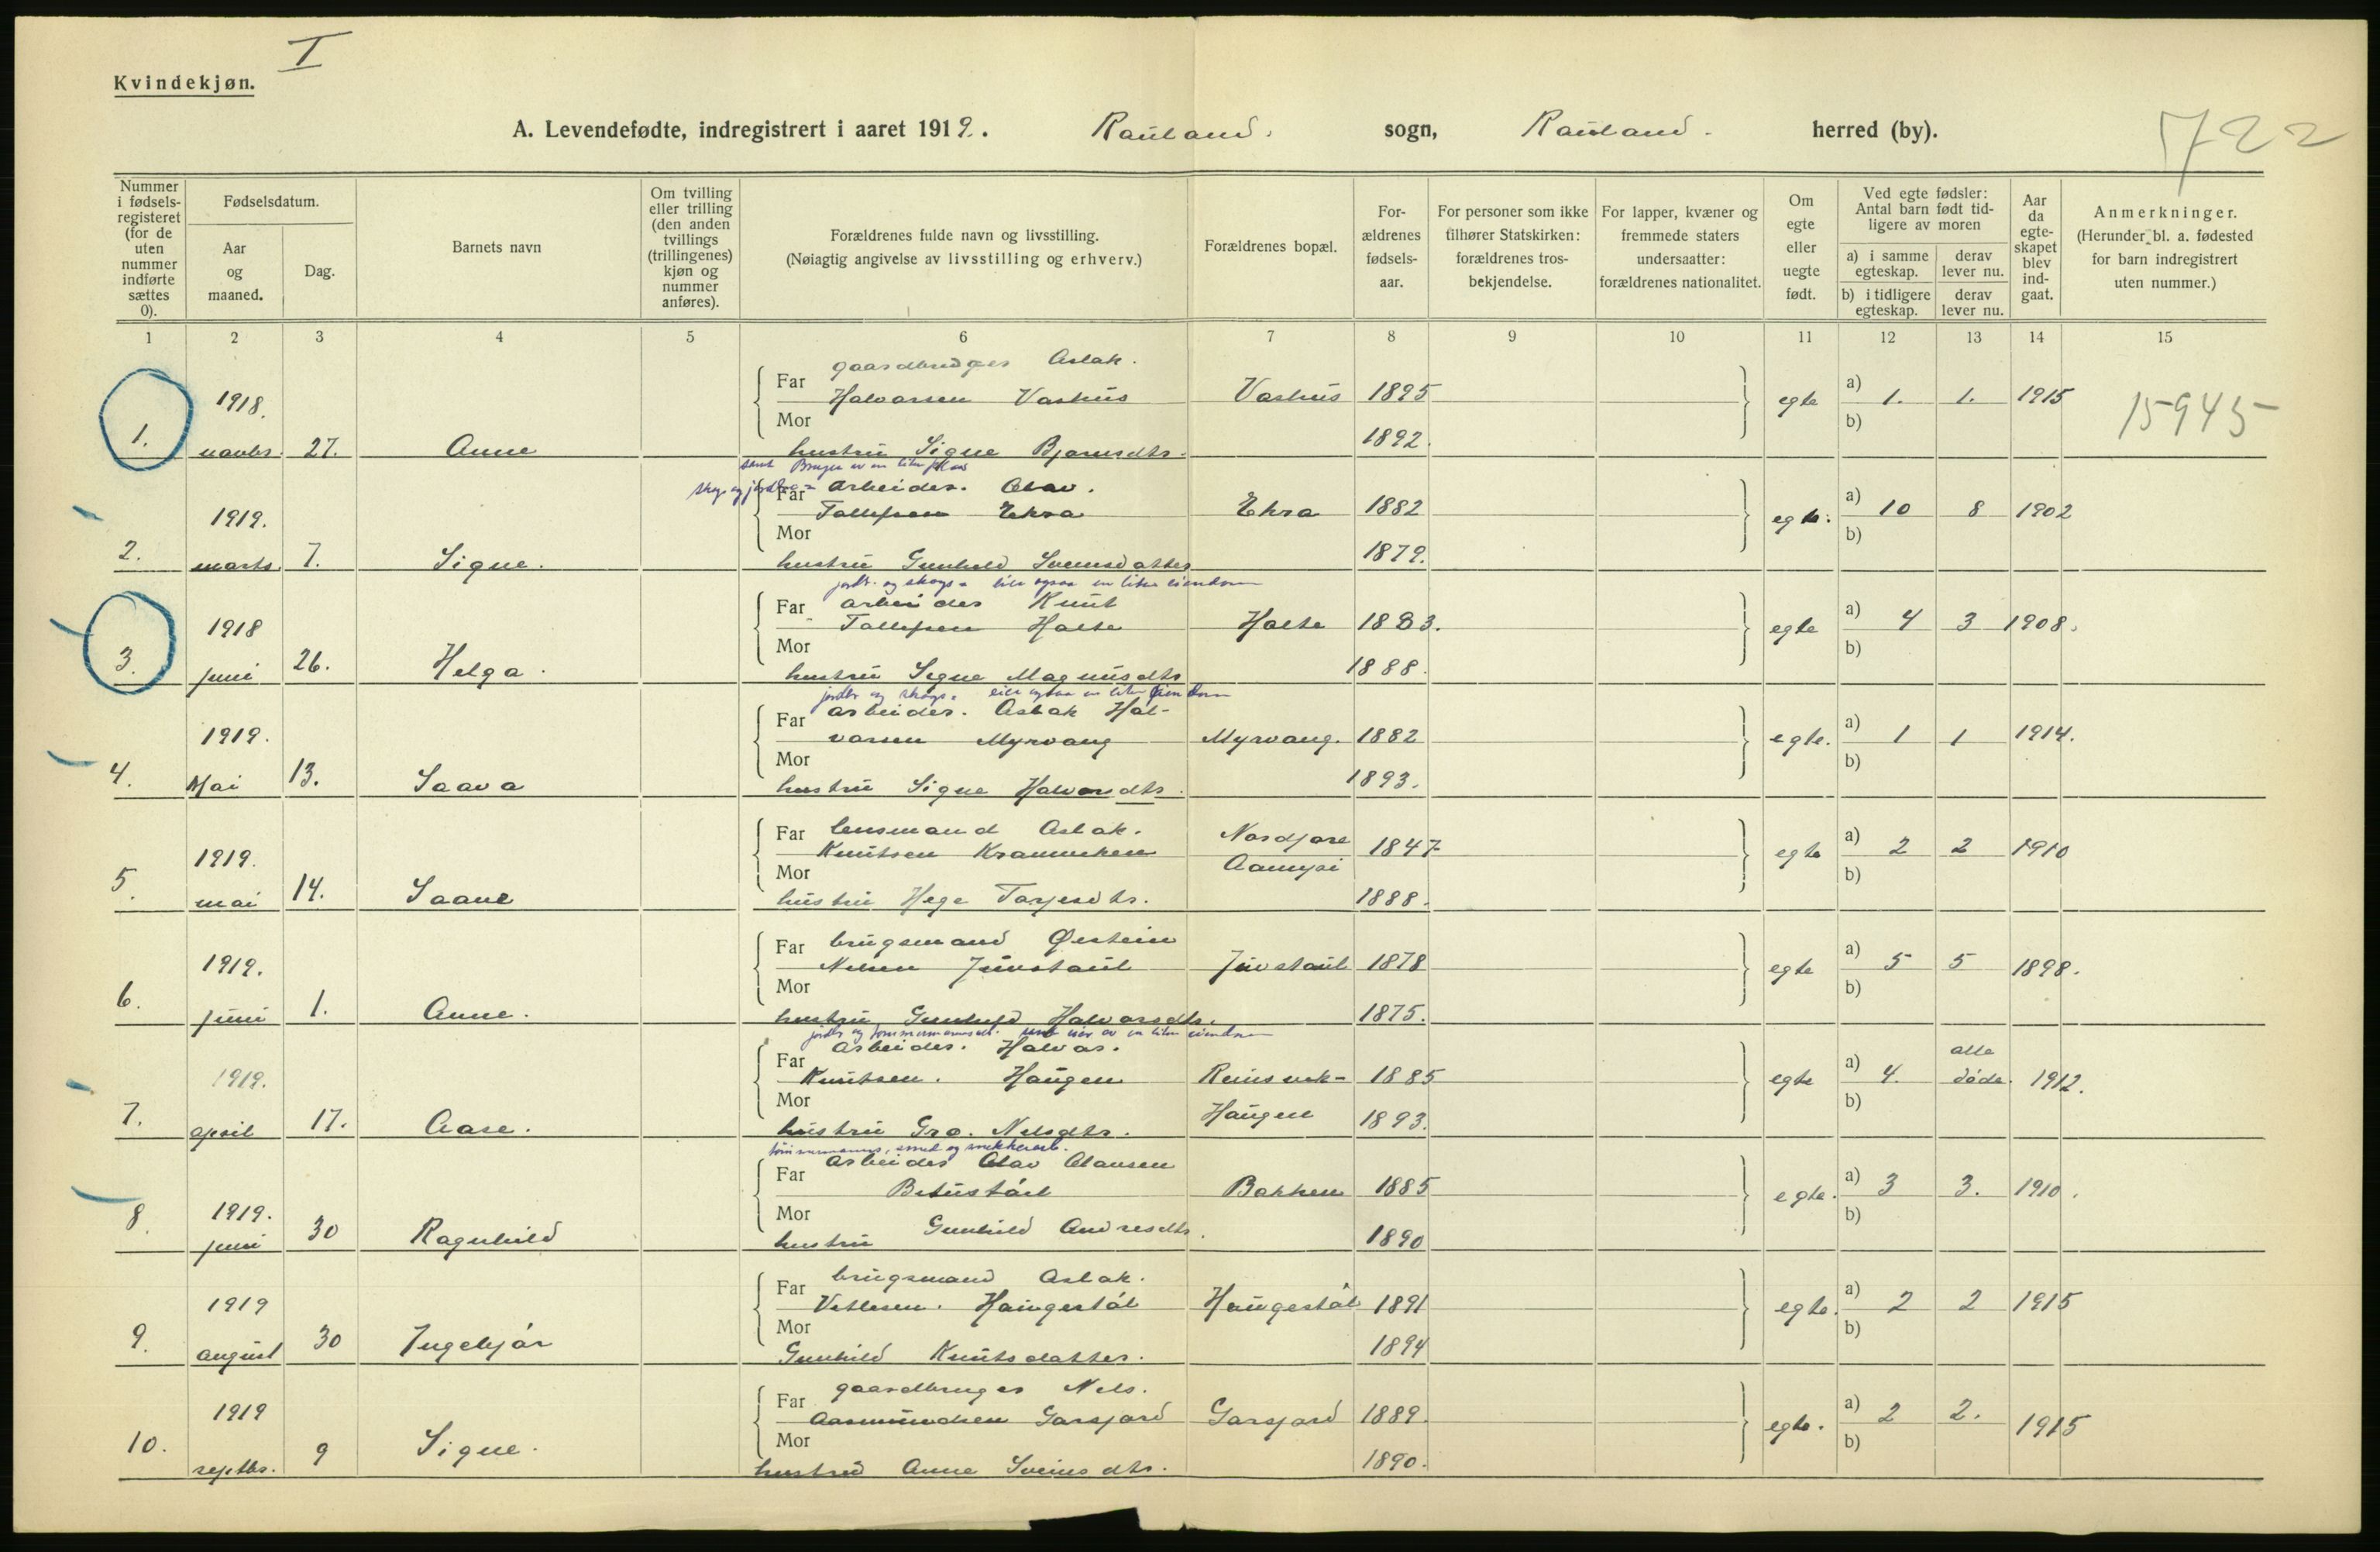 I
Kvindekjøn.
A. Levendefødte, indregistrert i aaret 1919. Rauland. sogn, Rauland. herred (by).
722
Nummer i fødselsregisteret (for de uten nummer indførte sættes 0).
Fødselsdatum.
Aar og maaned.
Dag.
Barnets navn
Om tvilling eller trilling (den anden tvillings (trillingenes) kjøn og nummer anføres).
Forældrenes fulde navn og livsstilling.
(Nøiagtig angivelse av livsstilling og erhverv.)
Forældrenes bopæl.
Forældrenes fødselsaar.
For personer som ikke tilhører Statskirken: forældrenes trosbekjendelse.
For lapper, kvæner og fremmede staters undersaatter: forældrenes nationalitet.
Om egte eller uegte født.
Ved egte fødsler: Antal barn født tidligere av moren
a) i samme egteskap.
derav lever nu.
b) i tidligere egteskap.
derav lever nu.
Aar da egteskapet blev indgaat.
Anmerkninger.
(Herunder bl. a. fødested for barn indregistrert uten nummer.)
1 2 3 4 5 6 7 8 9 10 11 12 13 14 15
gaardbruger Aslak.
1918. Far Halvorsen Vashus Vashus 1895 egte a) 1. 1. 1915 15945
1. novbr. 27. Anne Mor hustru Signe Bjørnsdtr. 1892. b)
samt Bruger av en liten plads
skogs og jordbr = arbeider. Olav.
1919. Far Tollefsen Ekra Ekra 1882 egte. a) 10 8 1902
2. marts 7. Signe. Mor hustru Gunhild Sveinsdatter 1879. b)
jordbr. og skogs = eier ogsaa en liten eiendom
arbeider Knut
1918 Far Tollefsen Holte Holte 1883. egte a) 4 3 1908.
3. juni 26. Helga. Mor hustru Signe Magnusdtr 1888. b)
jordbr og skogs = eier ogsaa en liten eiendom
arbeider. Aslak Hal-
1919. Far vorsen Myrvang Myrvang. 1882 egte. a) 1 1 1914.
4. Mai 13. Saava Mor hustru Signe Halvorsdtr. 1893. b)
lensmand Aslak. Nordjore
1919. Far Knutsen Kromviken Aamyri 1847 egte a) 2 2 1910
5. mai 14. Saave Mor hustru Hege Tarjesdtr. 1888. b)
brugsmand Øistein
1919. Far Nilsen Juvstaul Juvstaul 1878 egte a) 5 5 1898.
6. juni 1. Anne. Mor hustru Gunhild Halvorsdtr. 1875. b)
jordbr og tømmermannsarb. samt eier av en liten eiendom
arbeider. Halvor. alle
1919. Far Knutsen. Haugen Reinsvek- 1885 egte a) 4. døde. 1912.
7. april 17. Aase. Mor hustru Gro. Nilsdtr. Haugen 1893. b)
tømmermanns, smed og snekkerarb.
arbeider Olav Olavsen
1919. Far Bitustøil Bakken 1885 egte. a) 3 3. 1910.
8. juni 30 Ragnhild Mor hustru Gunhild Andresdtr. 1890 b)
brugsmand Aslak.
1919 Far Vetlesen. Haugestøl Haugestøl 1891 egte. a) 2 2 1915
9. august 30 Ingebjør Mor Gunhild Knutsdatter. 1894 b)
gaardbruger Nils.
1919 Far Aasmundsen Garsjord Garsjord 1889. egte. a) 2 2. 1915
10. septbr. 9 Signe. Mor hustru Anne Sveinsdtr. 1890. b)